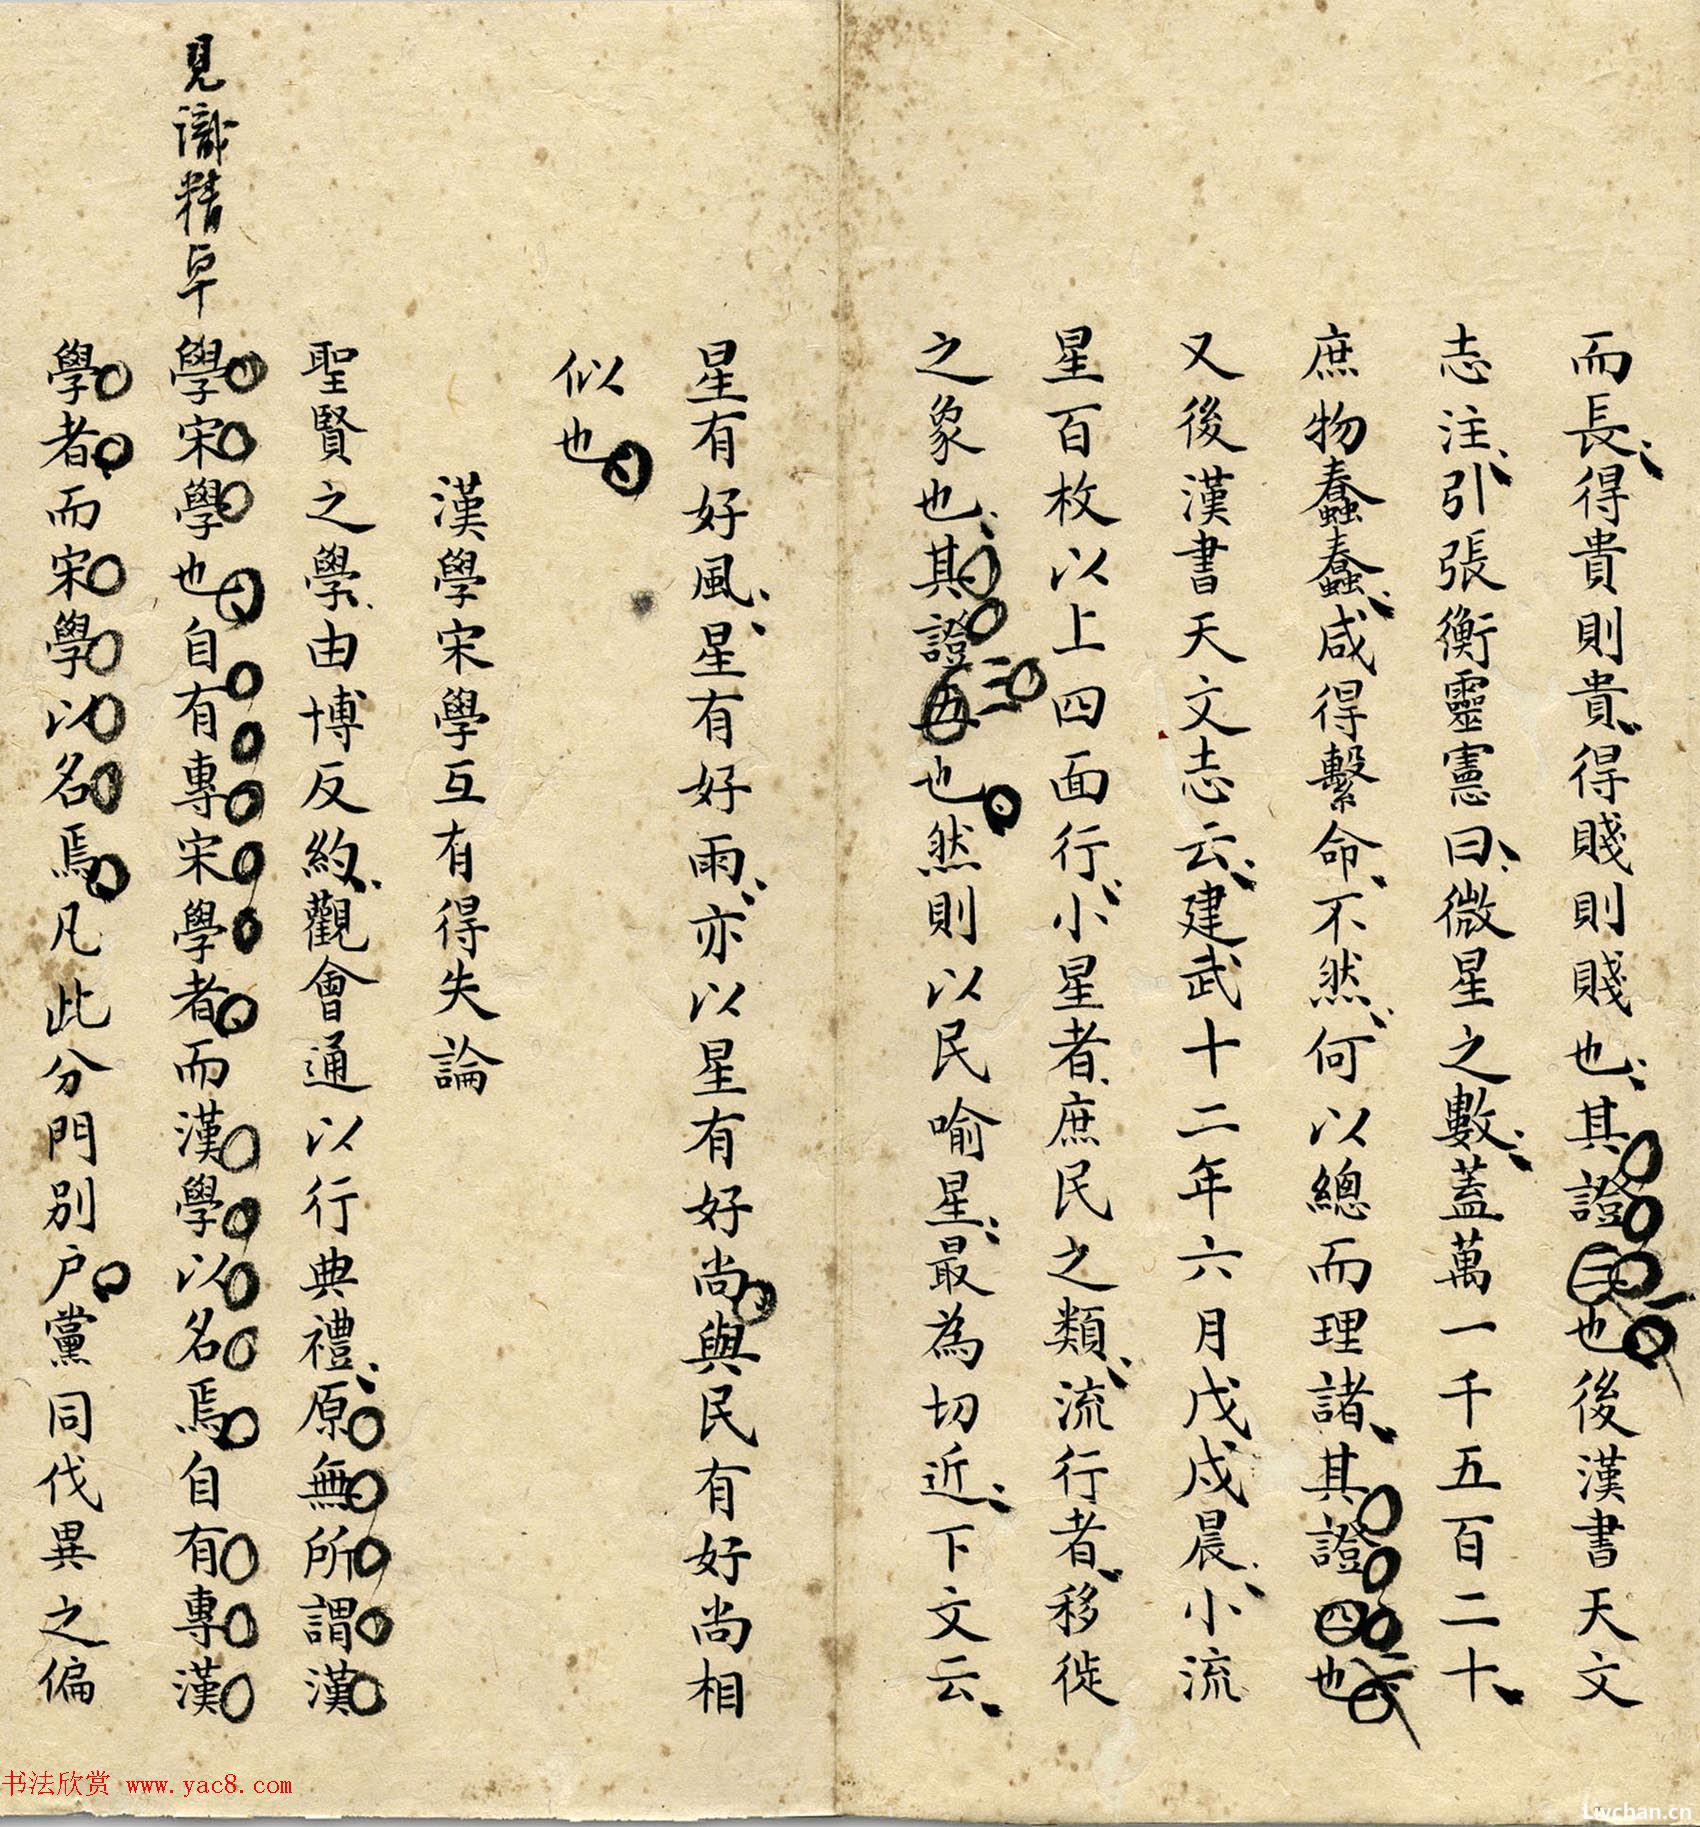 而長得貴則貴得賤則賤也其證三也後漢書天文
一
志注引張衡靈憲曰微星之數蓋萬一千五百二十
庶物蠢蠢咸得繫命不然何以總而理諸其證四也
二
又後漢書天文志云建武十二年六月戊戌晨小流
星百枚以上四面行小星者庶民之類流行者移徙
之象也其證五也然則以民喻星最為切近下文云
三
星有好風星有好雨亦以星有好尚與民有好尚相
似也
漢學宋學互有得失論
聖賢之學由博反約觀會通以行典禮原無所謂漢
學宋學也自有專宋學者而漢學以名焉自有專漢
見識精卓
學者而宋學以名焉凡此分門別户黨同伐異之偏
书法欣赏 www.yac8.com
Livchan.cn